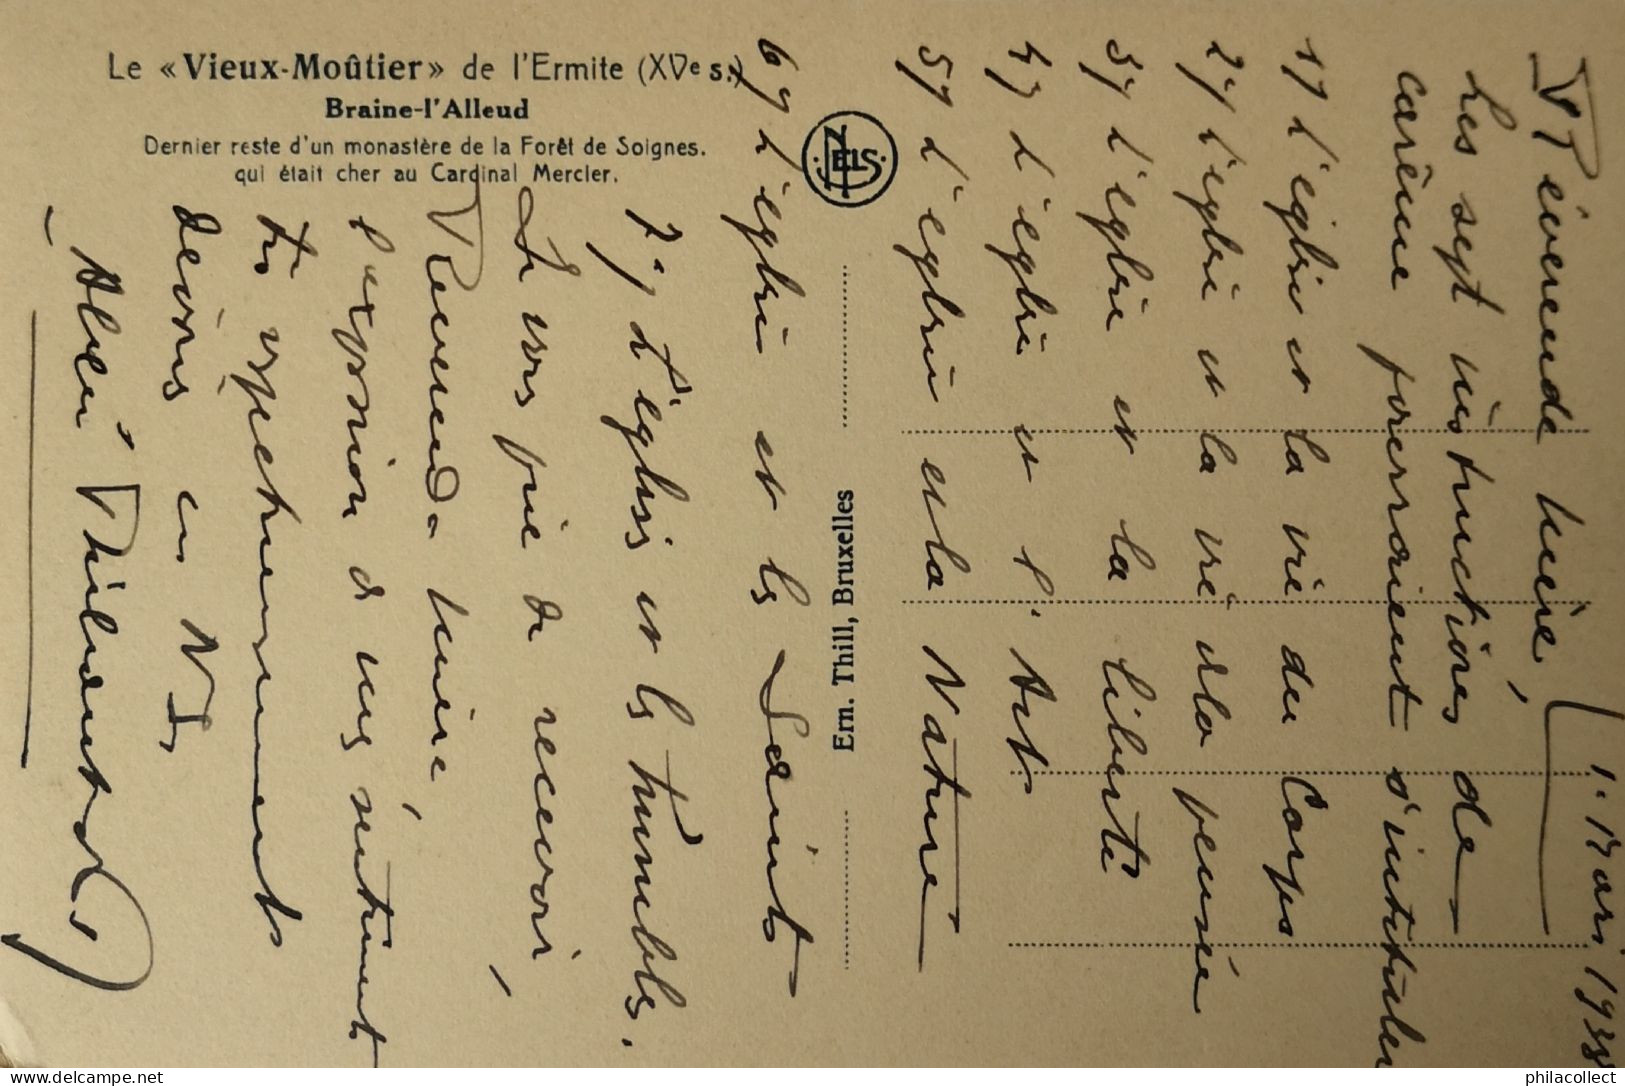 Le «Vieux-Moûtier» de l'Ermite (XVe s.)
Braine-l'Alleud
Dernier reste d'un monastère de la Forêt de Soignes.
qui était cher au Cardinal Mercier.
NELS
Ern. Thill, Bruxelles
1. Mars 1938
Révérende Mère,
Les sept instructions de
carême pourraient s'intituler
1) L'église et la vie du Corps
2) L'église et la vie de la pensée
3) L'église et la liberté
4) L'église et l'Art
5) L'église et la Nature
6) L'église et les Saints
7) L'église et les humbles.
Je vous prie de recevoir,
Révérende Mère,
l'expression de mes sentiments
très respectueusement
dévoués en N.S.
philacollect